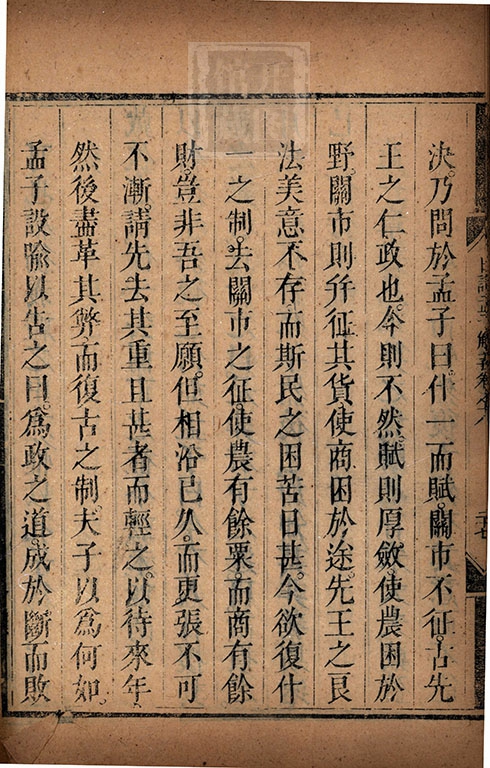 決乃問於孟子曰什一而賦關市不征古先
王之仁政也今則不然賦則厚斂使農困於
野關市則并征其貨使商困於途先王之良
法美意不存而斯民之困苦日甚今欲復什
一之制去關市之征使農有餘粟而商有餘
財豈非吾之至願但相沿已久而更張不可
不漸請先去其重且甚者而輕之以待來年
然後盡革其弊而復古之制夫子以為何如
孟子設喩以告之曰爲政之道成於斷而敗